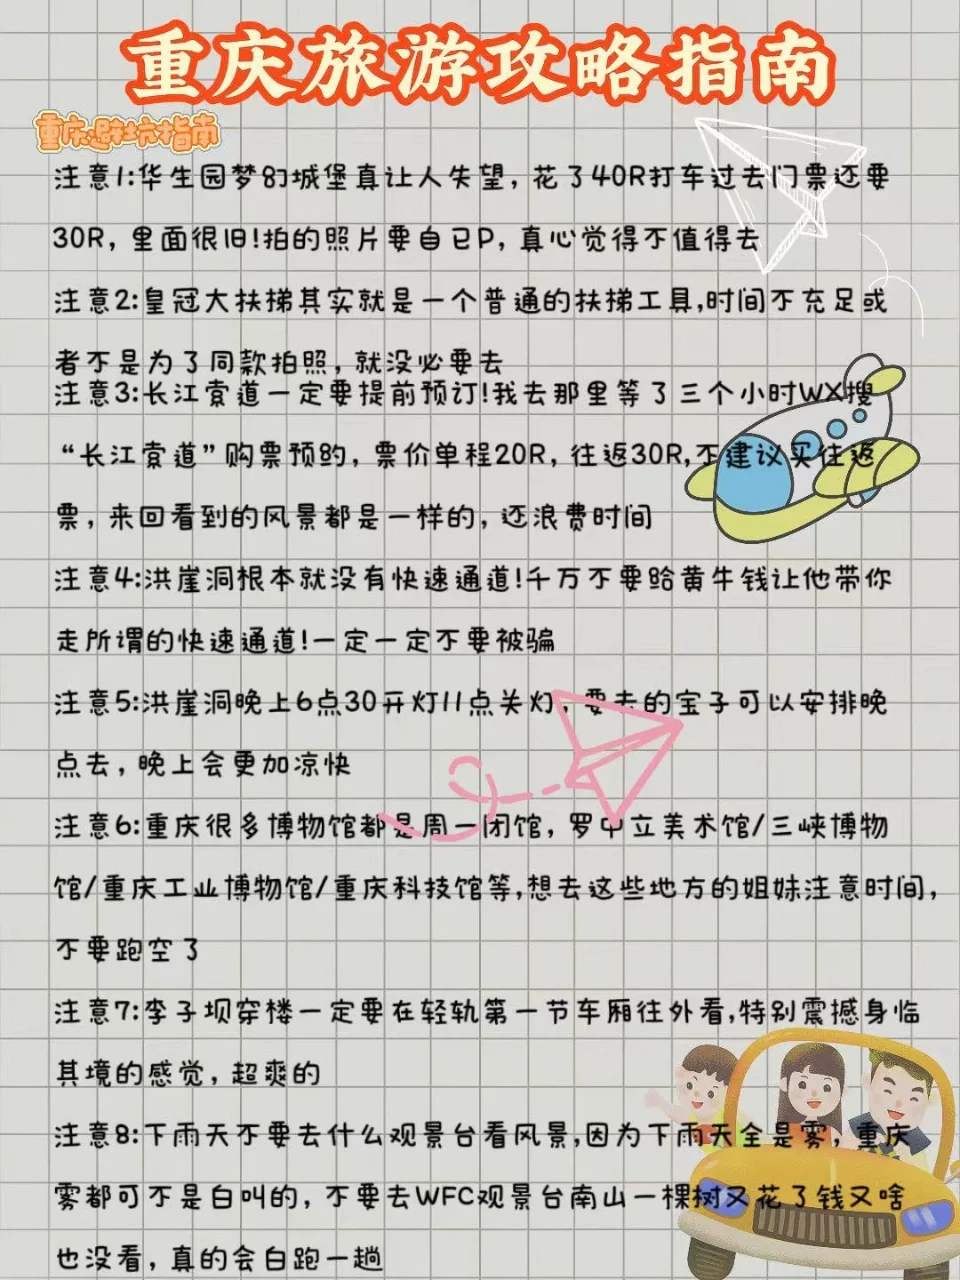 重庆旅游攻略指南
重庆避坑指南
注意1:华生园梦幻城堡真让人失望，花了40R打车过去门票还要
30R，里面很旧!拍的照片要自己P，真心觉得不值得去
注意2:皇冠大扶梯其实就是一个普通的扶梯工具,时间不充足或
者不是为了同款拍照，就没必要去
注意3:长江索道一定要提前预订!我去那里等了三个小时WX搜
“长江索道”购票预约，票价单程20R，往返30R,不建议买往返
票，来回看到的风景都是一样的，还浪费时间
注意4:洪崖洞根本就没有快速通道!千万不要给黄牛钱让他带你
走所谓的快速通道!一定一定不要被骗
注意5:洪崖洞晚上6点30开灯11点关灯，要去的宝子可以安排晚
点去，晚上会更加凉快
注意6:重庆很多博物馆都是周一闭馆，罗中立美术馆/三峡博物
馆/重庆工业博物馆/重庆科技馆等,想去这些地方的姐妹注意时间，
不要跑空了
注意7:李子坝穿楼一定要在轻轨第一节车厢往外看,特别震撼身临
其境的感觉，超爽的
注意8:下雨天不要去什么观景台看风景,因为下雨天全是雾，重庆
雾都可不是白叫的，不要去WFC观景台南山一棵树又花了钱又啥
也没看，真的会白跑一趟